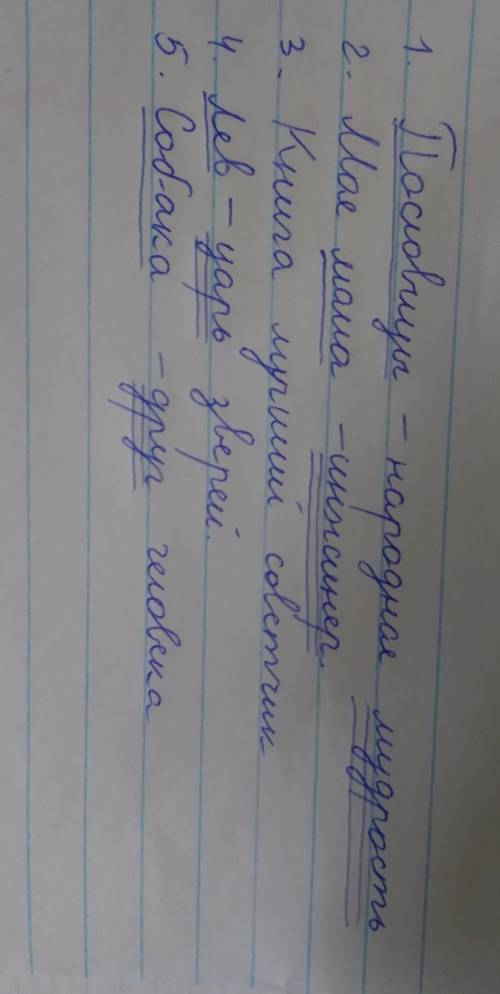 1. Пословицы - народная мудрость
2. Моя мама - инженер.
3. Книга лучший советчик
4. Лев - царь зверей.
5. Собака - друг человека